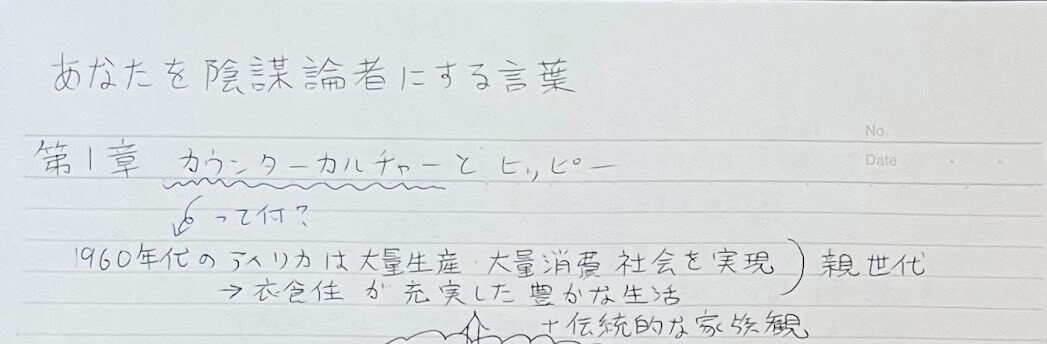 あなたを陰謀論者にする言葉
No.
Date
第1章 カウンターカルチャーと ヒッピー
って何?
1960年代のアメリカは大量生産・大量消費社会を実現 ) 親世代
→衣食住が充実した豊かな生活
+伝統的な家族観